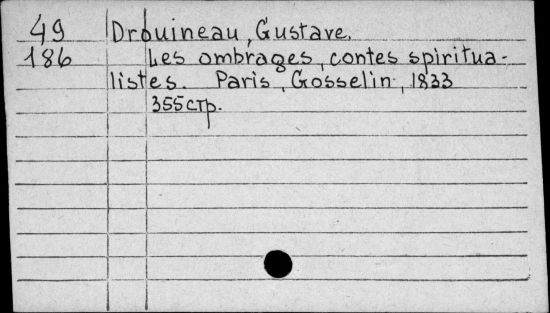 49 Drouineau, Gustave.
186 Les ombrages, contes spiritua-
listes. Paris, Gosselin, 1833
355стр.